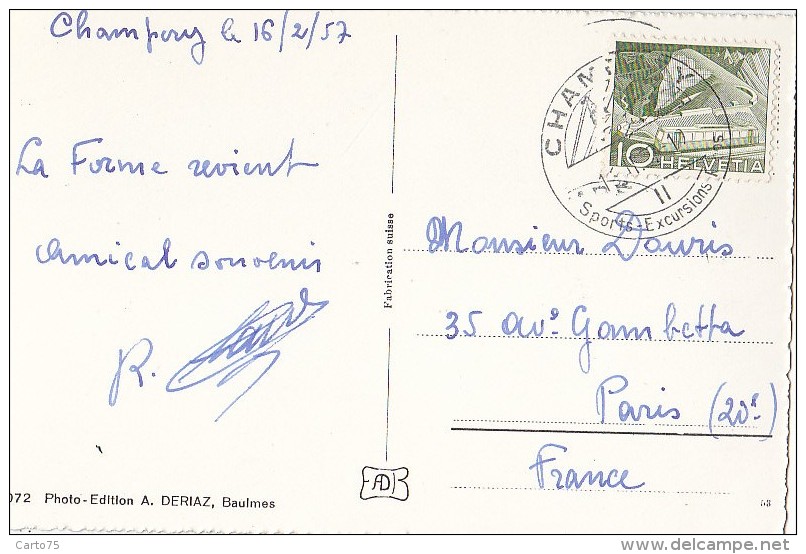 Champery le 16/2/57
La Forme revient
Amical souvenir
R.
072 Photo-Edition A. DERIAZ, Baulmes
Fabrication suisse
10 HELVETIA
CHAMPERY
II
Sports-Excursions
Monsieur Dauris
35 av. Gambetta
Paris (20e)
France
53
Carto75
delcampe.net